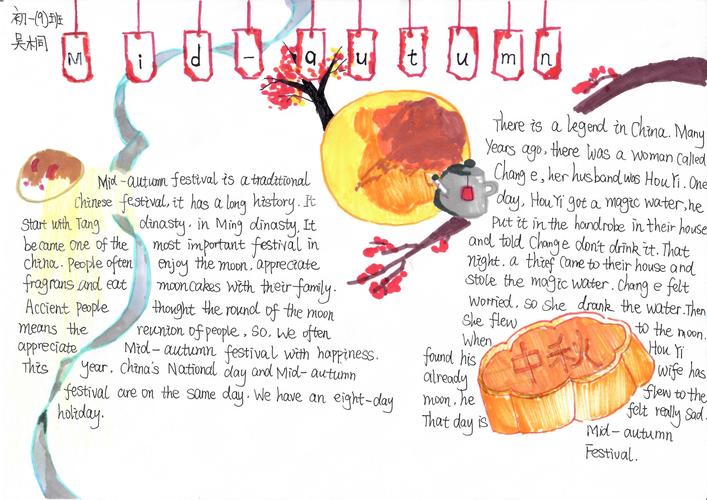 初一(9)班
吴桐
Mid-autumn
Mid-autumn festival is a traditional
Chinese festival, it has a long history. It
start with Tang dinasty, in Ming dinasty, It
became one of the most important festival in
China. People often enjoy the moon, appreciate
fragrans and eat mooncakes with their family.
Accient people thought the round of the moon
means the reunion of people, So, We often
appreciate Mid-autumn festival with happiness.
This year, China's National day and Mid-autumn
festival are on the same day. We have an eight-day
holiday.
There is a legend in China. Many
Years ago, there was a woman called
Chang e, her husband was Hou Yi. One
day, Hou Yi got a magic water, he
Put it in the handrobe in their house
and told Chang e don't drink it. That
night. a thief cane to their house and
stole the magic water. Chang e felt
Worried, so she drank the water. Then
she flew to the moon.
When Hou Yi
found his wife has
already flew to the
moon, he felt really sad.
That day is Mid-autumn
Festival.
中秋